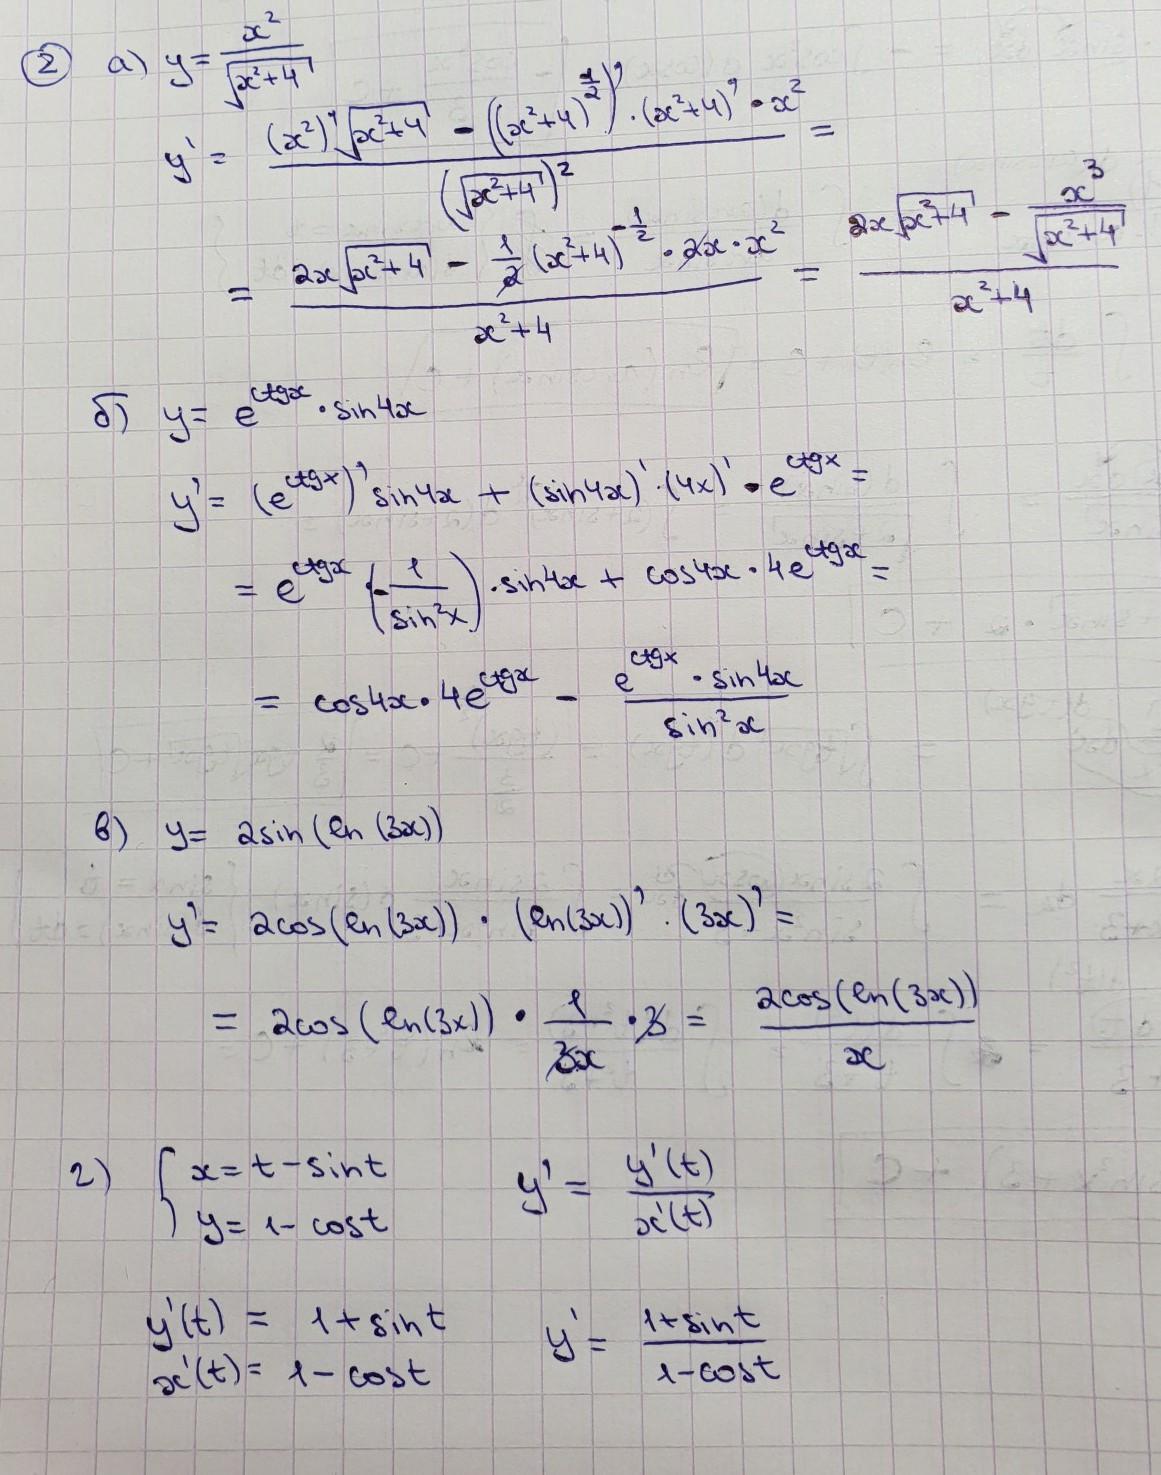 ② а) y = x²/√(x²+4)
y' = ((x²)'√(x²+4) - ((x²+4)^(1/2))' · (x²+4)' · x²)/(√(x²+4))² =
= (2x√(x²+4) - 1/2 (x²+4)^(-1/2) · 2x · x²)/(x²+4) = (2x√(x²+4) - x³/√(x²+4))/(x²+4)
б) y = e^(ctgx) · sin4x
y' = (e^(ctgx))' sin4x + (sin4x)' · (4x)' · e^(ctgx) =
= e^(ctgx) (-1/sin²x) · sin4x + cos4x · 4e^(ctgx) =
= cos4x · 4e^(ctgx) - (e^(ctgx) · sin4x)/(sin²x)
в) y = 2sin(ln(3x))
y' = 2cos(ln(3x)) · (ln(3x))' · (3x)' =
= 2cos(ln(3x)) · 1/(3x) · 3 = 2cos(ln(3x))/x
г) { x = t - sint y' = y'(t)/x'(t)
y = 1 - cost
y'(t) = 1 + sint y' = (1+sint)/(1-cost)
x'(t) = 1 - cost